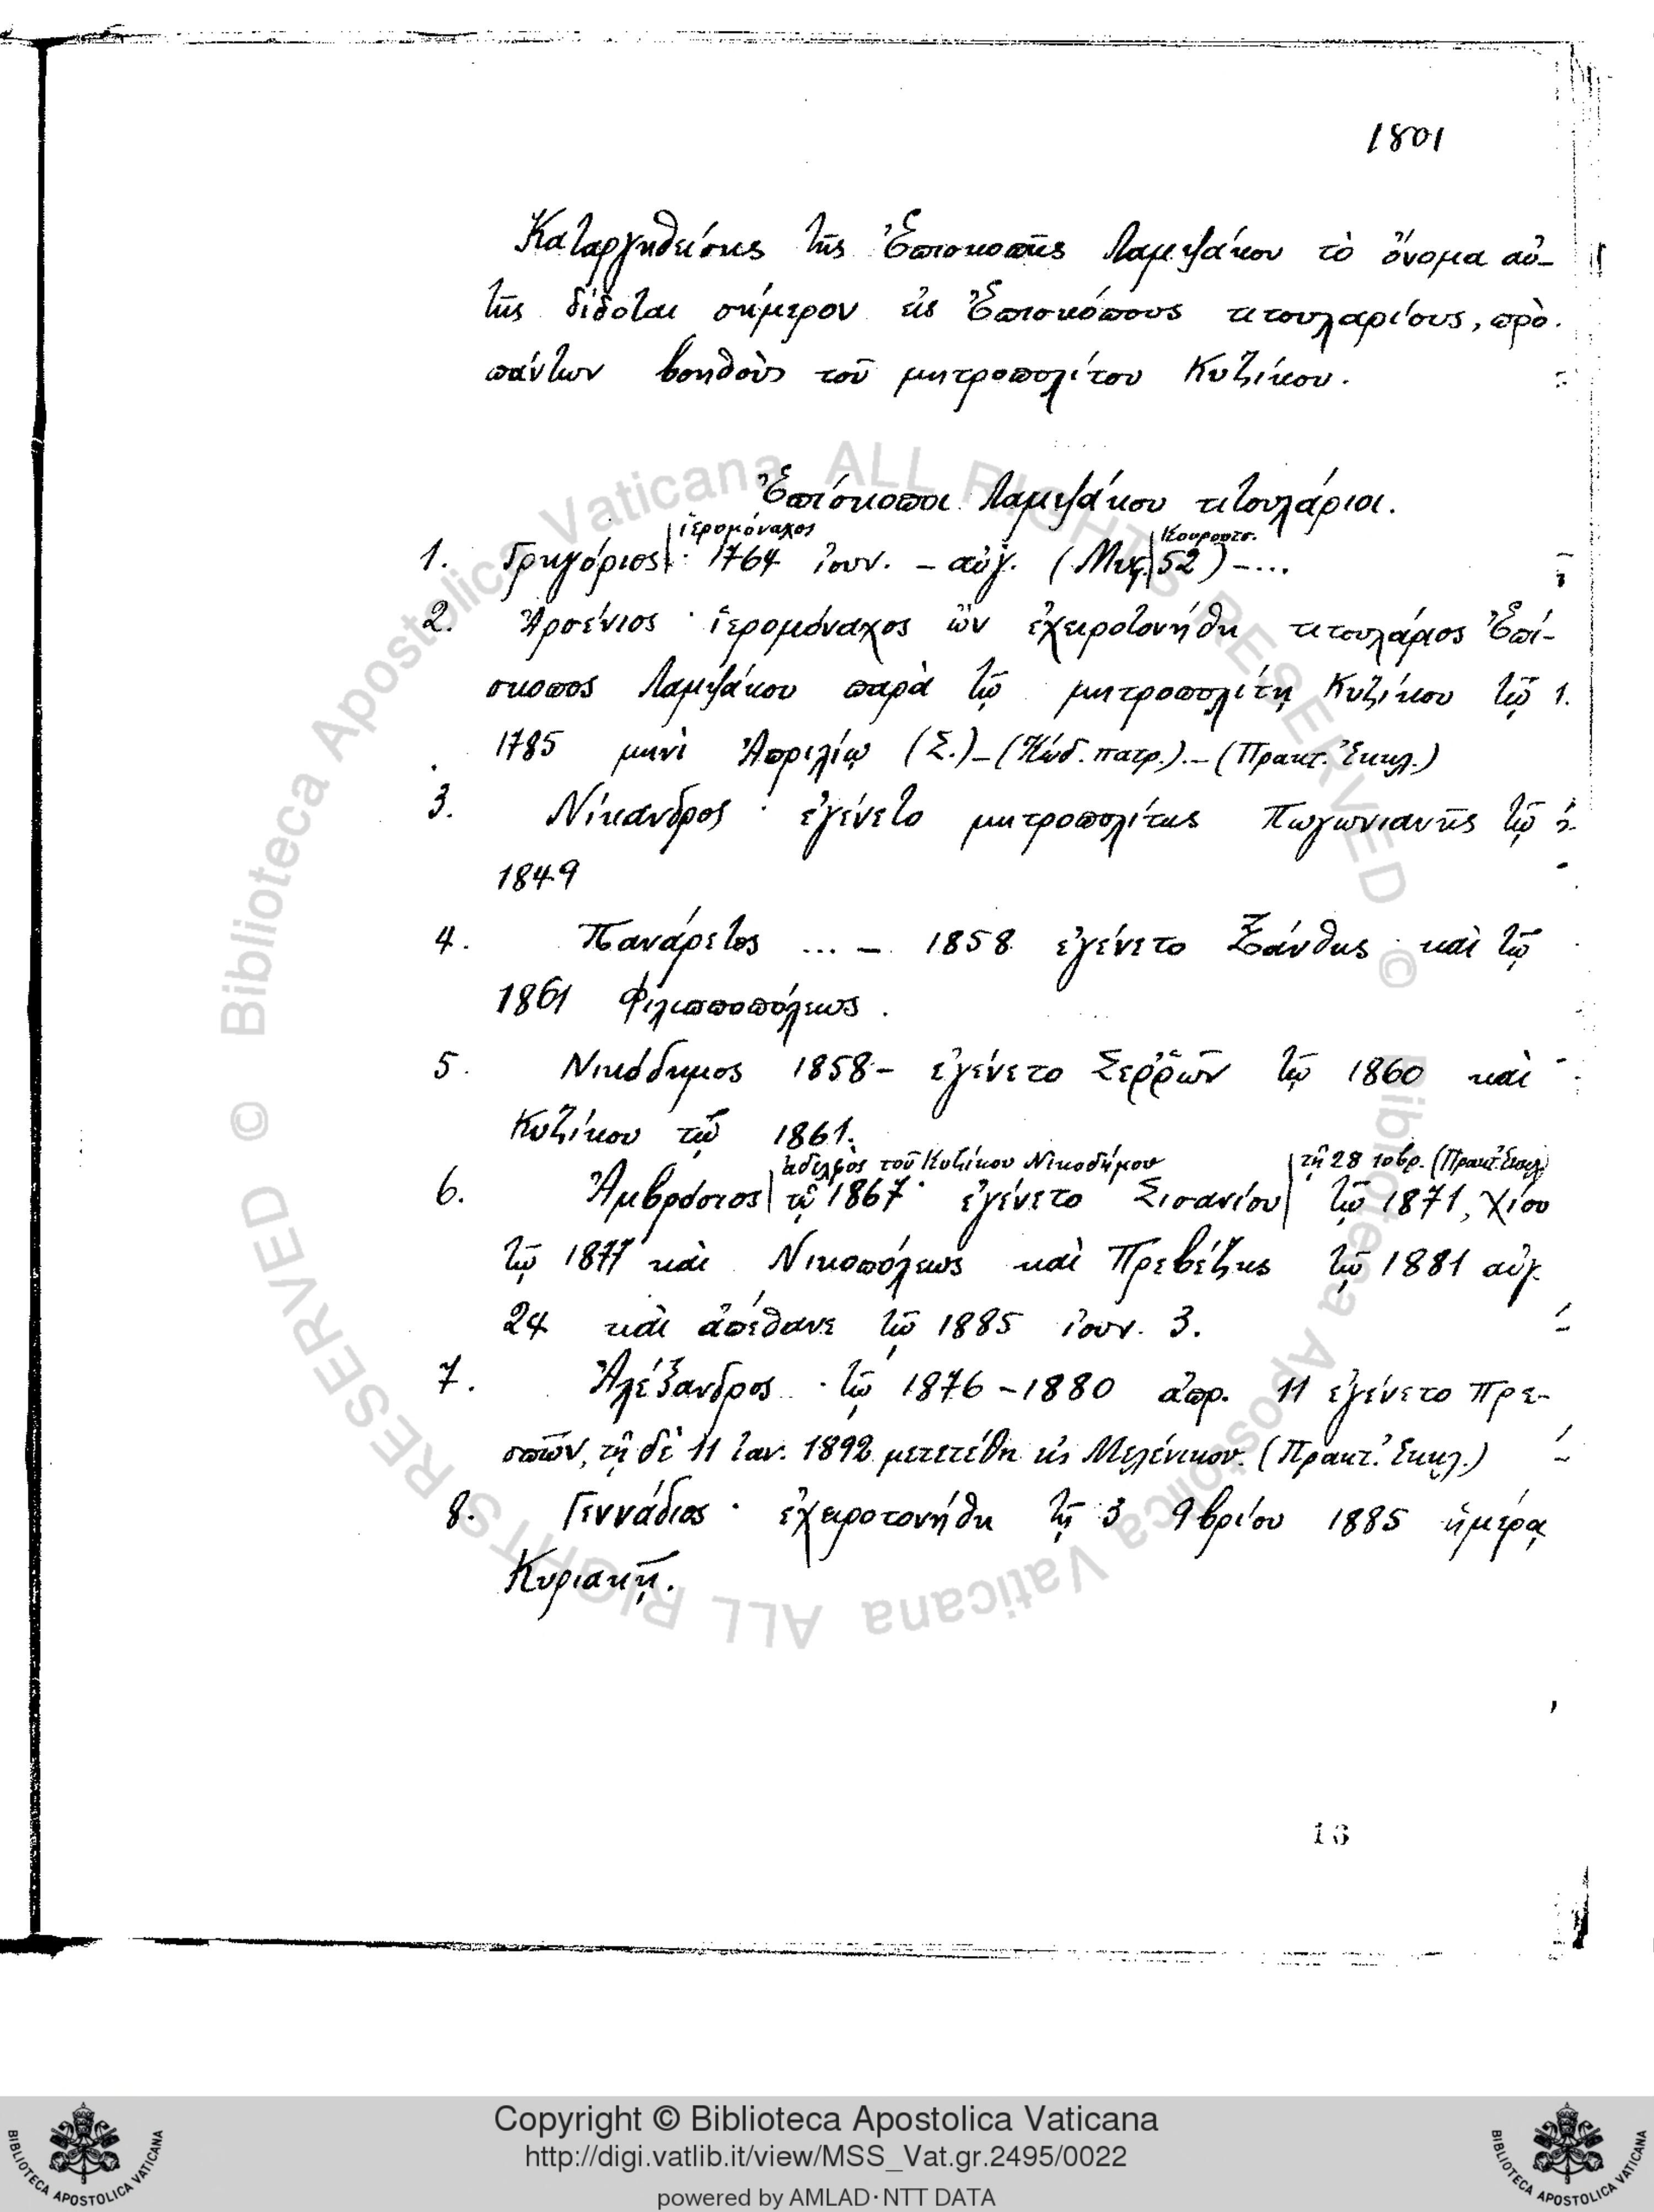 1801
Καταργηθείσης τῆς Ἐπισκοπῆς Λαμψάκου τὸ ὄνομα αὐ-
τῆς δίδοται σήμερον εἰς Ἐπισκόπους τιτουλαρίους, πρὸ
πάντων βοηθοὺς τοῦ μητροπολίτου Κυζίκου.
Ἐπίσκοποι Λαμψάκου τιτουλάριοι.
ἱερομόναχος Κουρουτσ.
1. Γρηγόριος · 1764 ἰουν. – αὐγ. (Μυς. 52) – ...
2. Ἀρσένιος · ἱερομόναχος ὢν ἐχειροτονήθη τιτουλάριος Ἐπί-
σκοπος Λαμψάκου παρὰ τῷ μητροπολίτῃ Κυζίκου τῷ
1785 μηνὶ Ἀπριλίῳ (Σ.) – (Κώδ. πατρ.). – (Πρακτ. Ἐκκλ.)
3. Νίκανδρος · ἐγένετο μητροπολίτης Πωγωνιανῆς τῷ
1849
4. Πανάρετος ... – 1858 ἐγένετο Ξάνθης καὶ τῷ
1861 Φιλιπποπόλεως.
5. Νικόδημος 1858 – ἐγένετο Σερρῶν τῷ 1860 καὶ
Κυζίκου τῷ 1861.
ἀδελφὸς τοῦ Κυζίκου Νικοδήμου τῇ 28 10βρ. (Πρακτ. Ἐκκλ.)
6. Ἀμβρόσιος τῷ 1867 · ἐγένετο Σισανίου τῷ 1871, Χίου
τῷ 1877 καὶ Νικοπόλεως καὶ Πρεβέζης τῷ 1881 αὐγ.
24 καὶ ἀπέθανε τῷ 1885 ἰουν. 3.
7. Ἀλέξανδρος · τῷ 1876 – 1880 ἀπρ. 11 ἐγένετο Πρε-
σπῶν, τῇ δὲ 11 ἰαν. 1892 μετετέθη εἰς Μελένικον. (Πρακτ. Ἐκκλ.)
8. Γεννάδιος · ἐχειροτονήθη τῇ 3 9βρίου 1885 ἡμέρᾳ
Κυριακῇ.
13
© Biblioteca Apostolica Vaticana ALL RIGHTS RESERVED © Biblioteca Apostolica Vaticana ALL RIGHTS RESERVED
Copyright © Biblioteca Apostolica Vaticana
http://digi.vatlib.it/view/MSS_Vat.gr.2495/0022
powered by AMLAD·NTT DATA
BIBLIOTECA APOSTOLICA VATICANA
BIBLIOTECA APOSTOLICA VATICANA